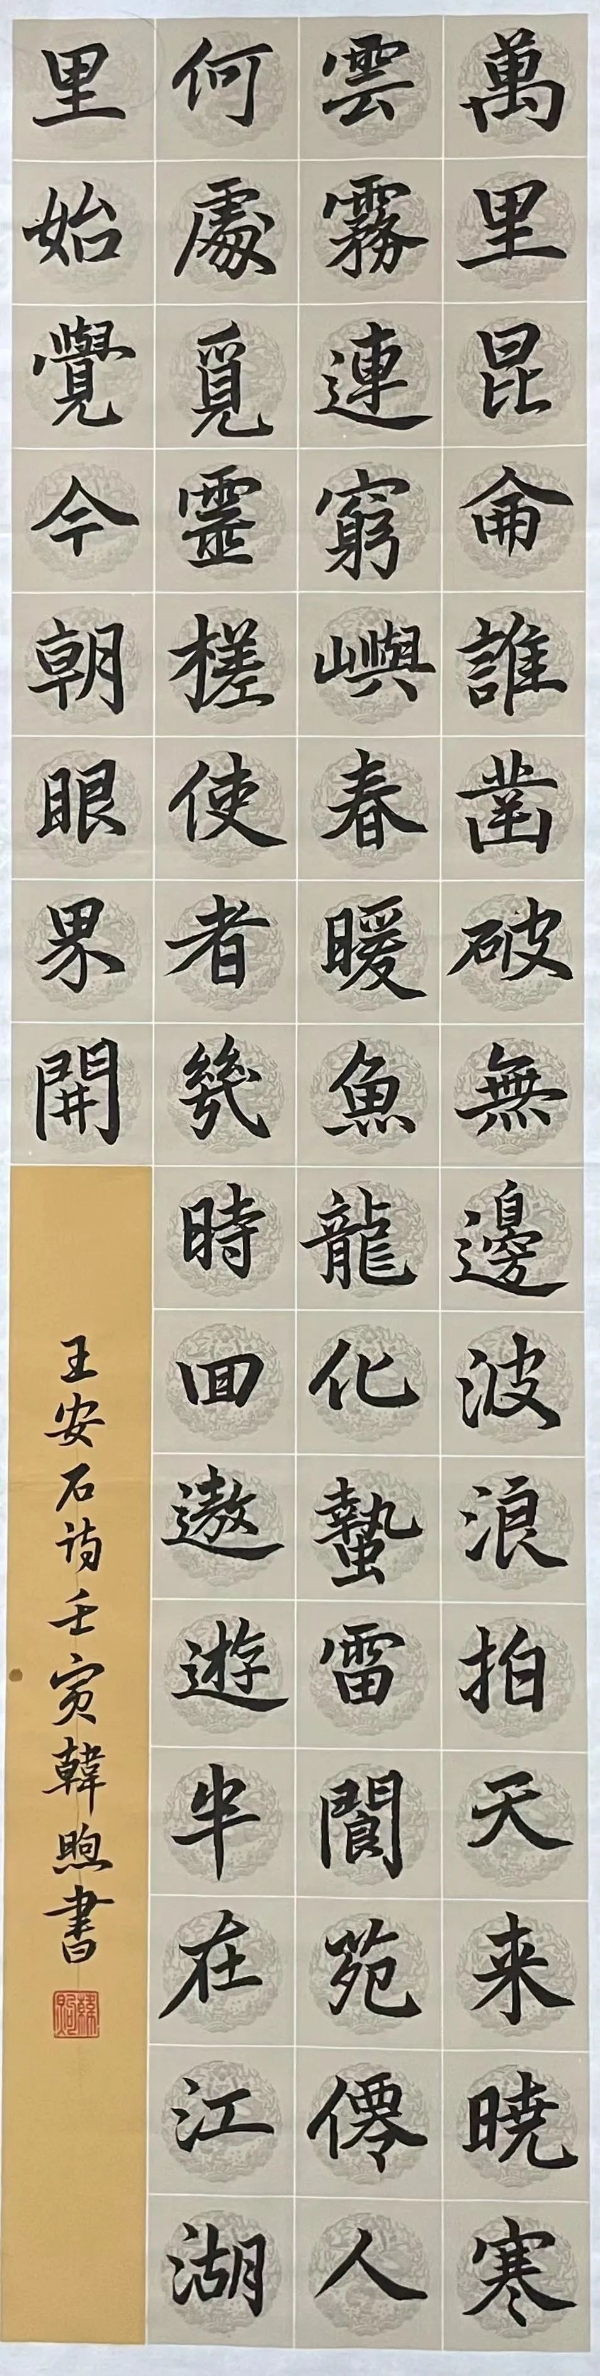 萬里昆侖誰凿破無邊波浪拍天来曉寒
雲霧連窮嶼春暖魚龍化蟄雷閬苑僊人
何處覓靈槎使者幾時回遨遊半在江湖
里始覺今朝眼界開
王安石诗壬寅韓煦書
韓煦